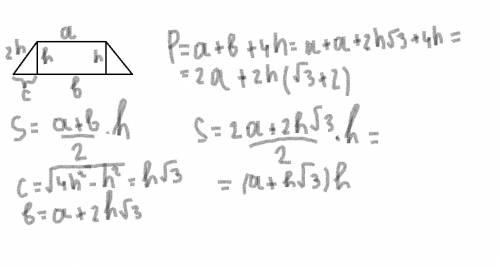 a
2h h h
c b
P=a+b+4h=a+a+2h√3+4h=
=2a+2h(√3+2)
S=(a+b)/2·h
S=(2a+2h√3)/2·h=
=(a+h√3)h
c=√(4h²-h²)=h√3
b=a+2h√3